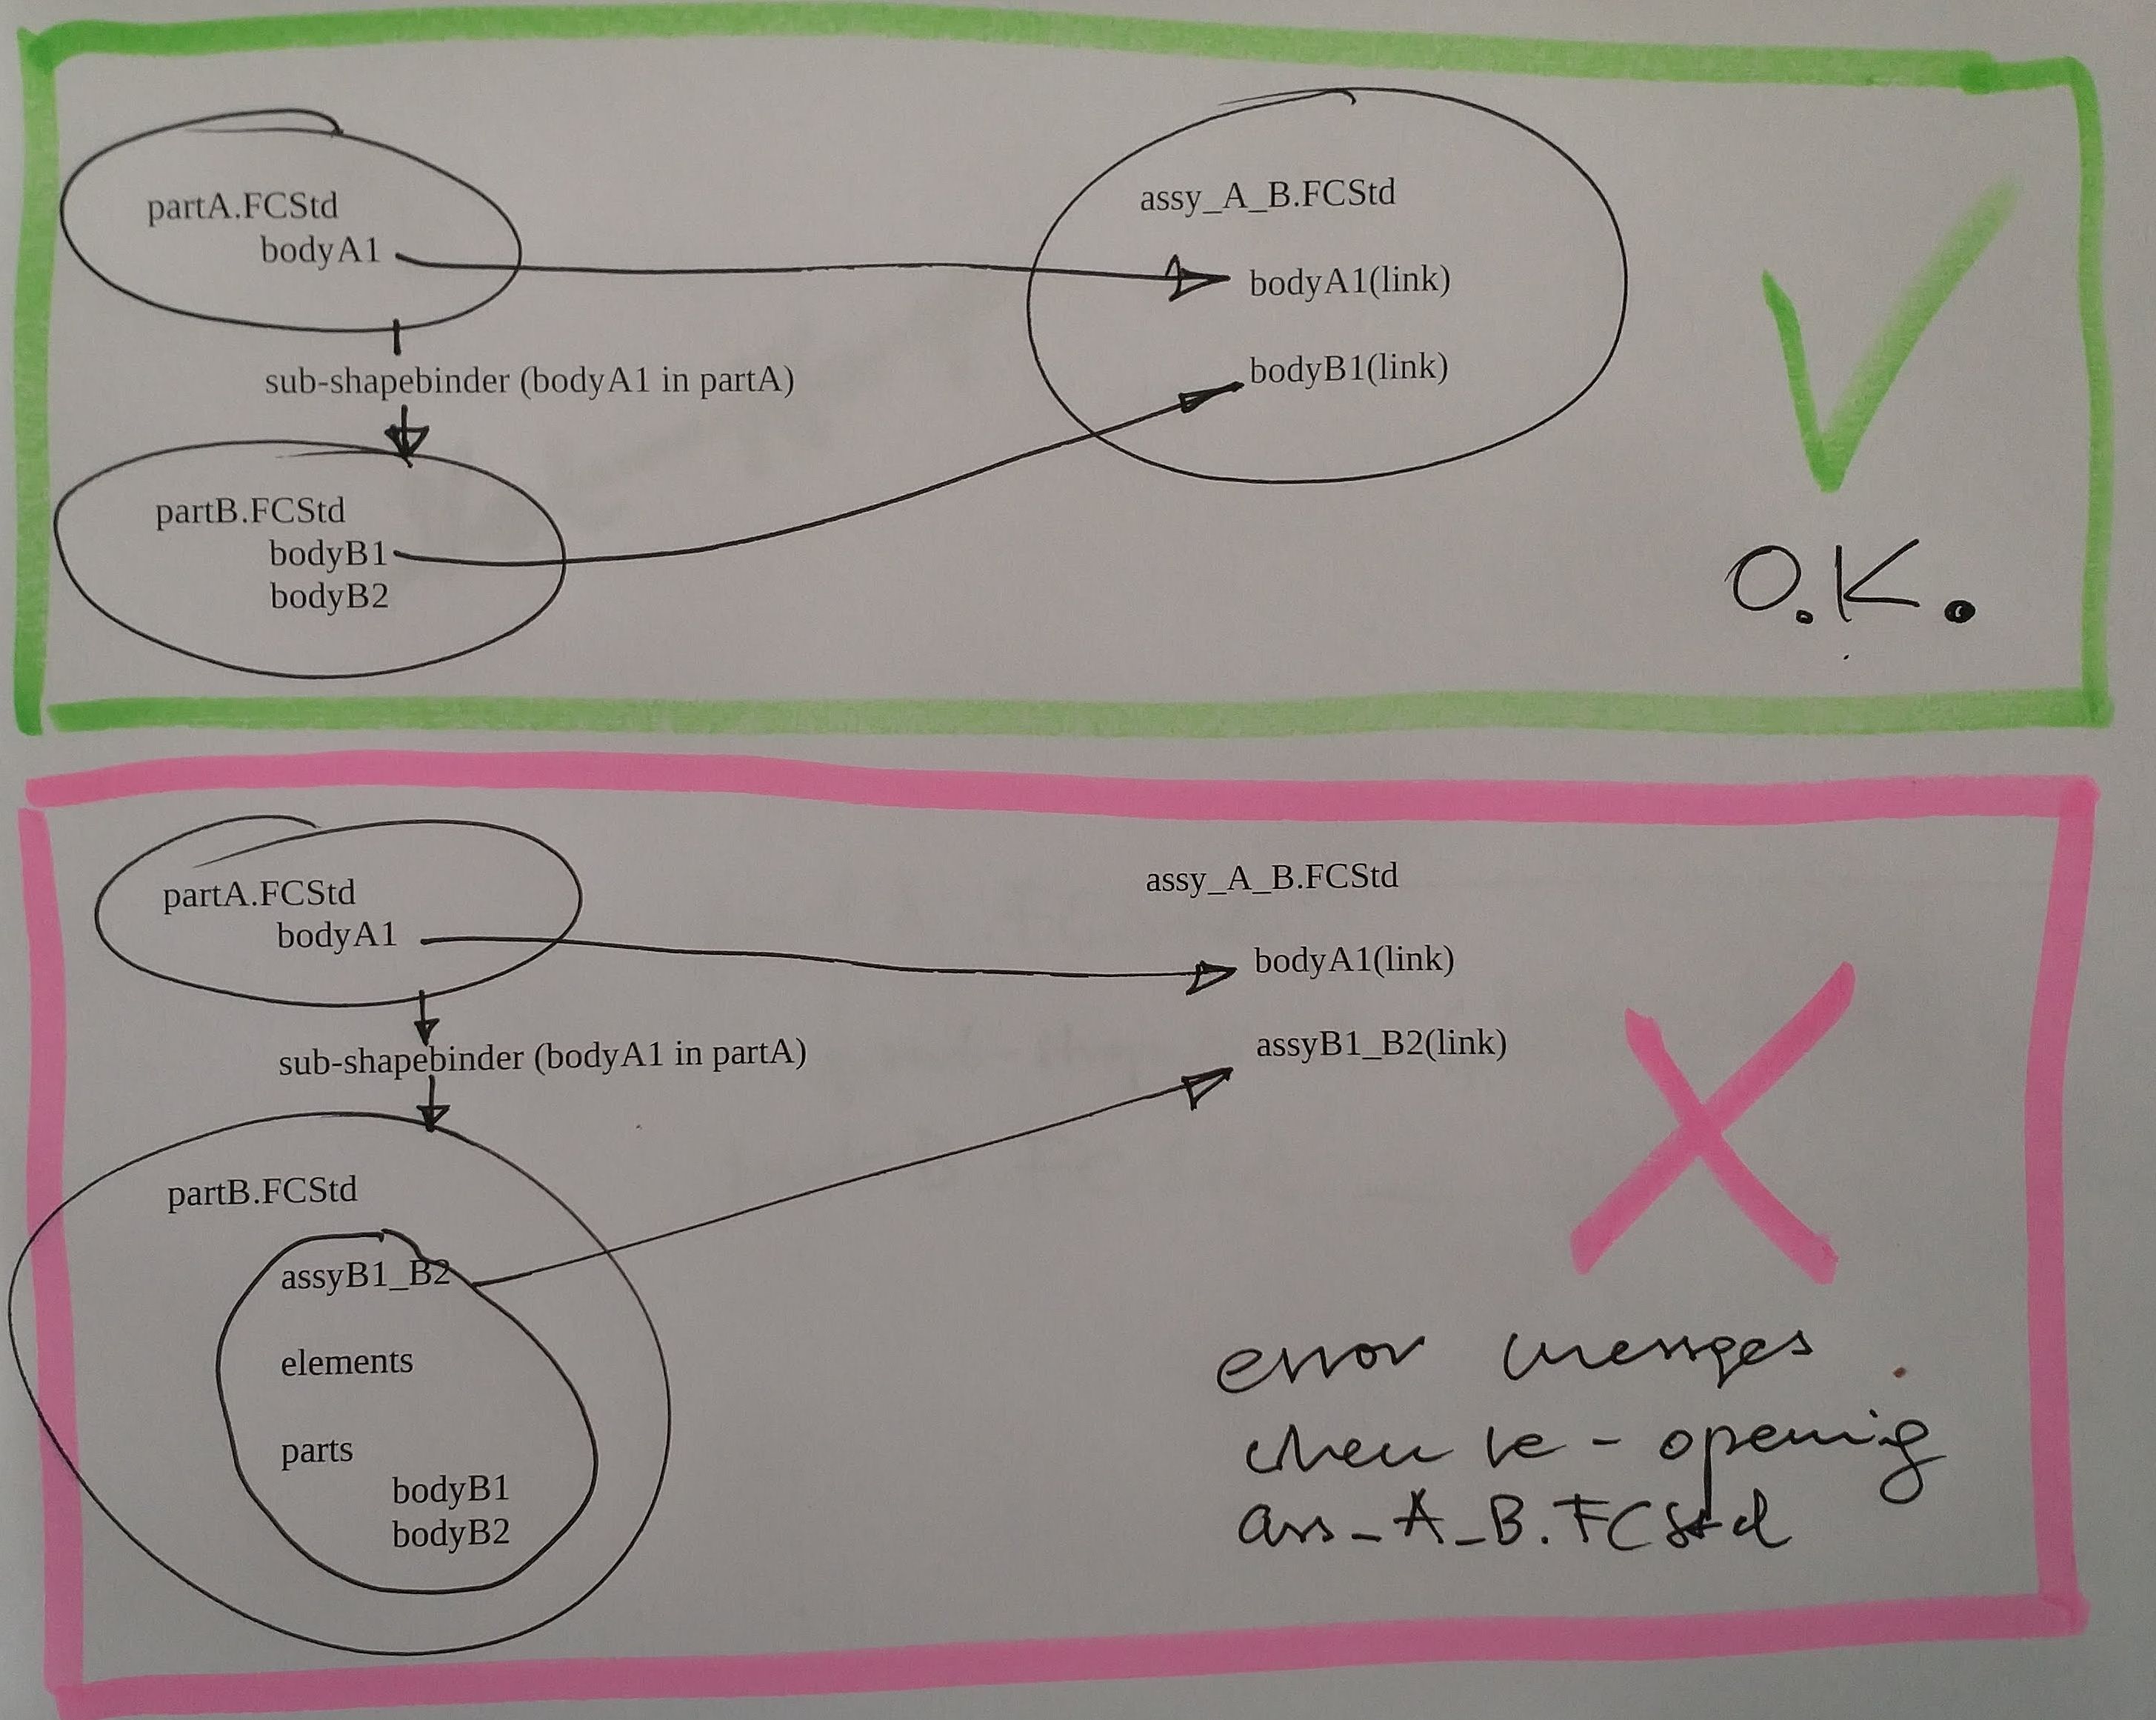 partA.FCStd
bodyA1
sub-shapebinder (bodyA1 in partA)
partB.FCStd
bodyB1
bodyB2
assy_A_B.FCStd
bodyA1(link)
bodyB1(link)
O.K.
partA.FCStd
bodyA1
sub-shapebinder (bodyA1 in partA)
partB.FCStd
assyB1_B2
elements
parts
bodyB1
bodyB2
assy_A_B.FCStd
bodyA1(link)
assyB1_B2(link)
error messges
when re-opening
ass_A_B.FCStd